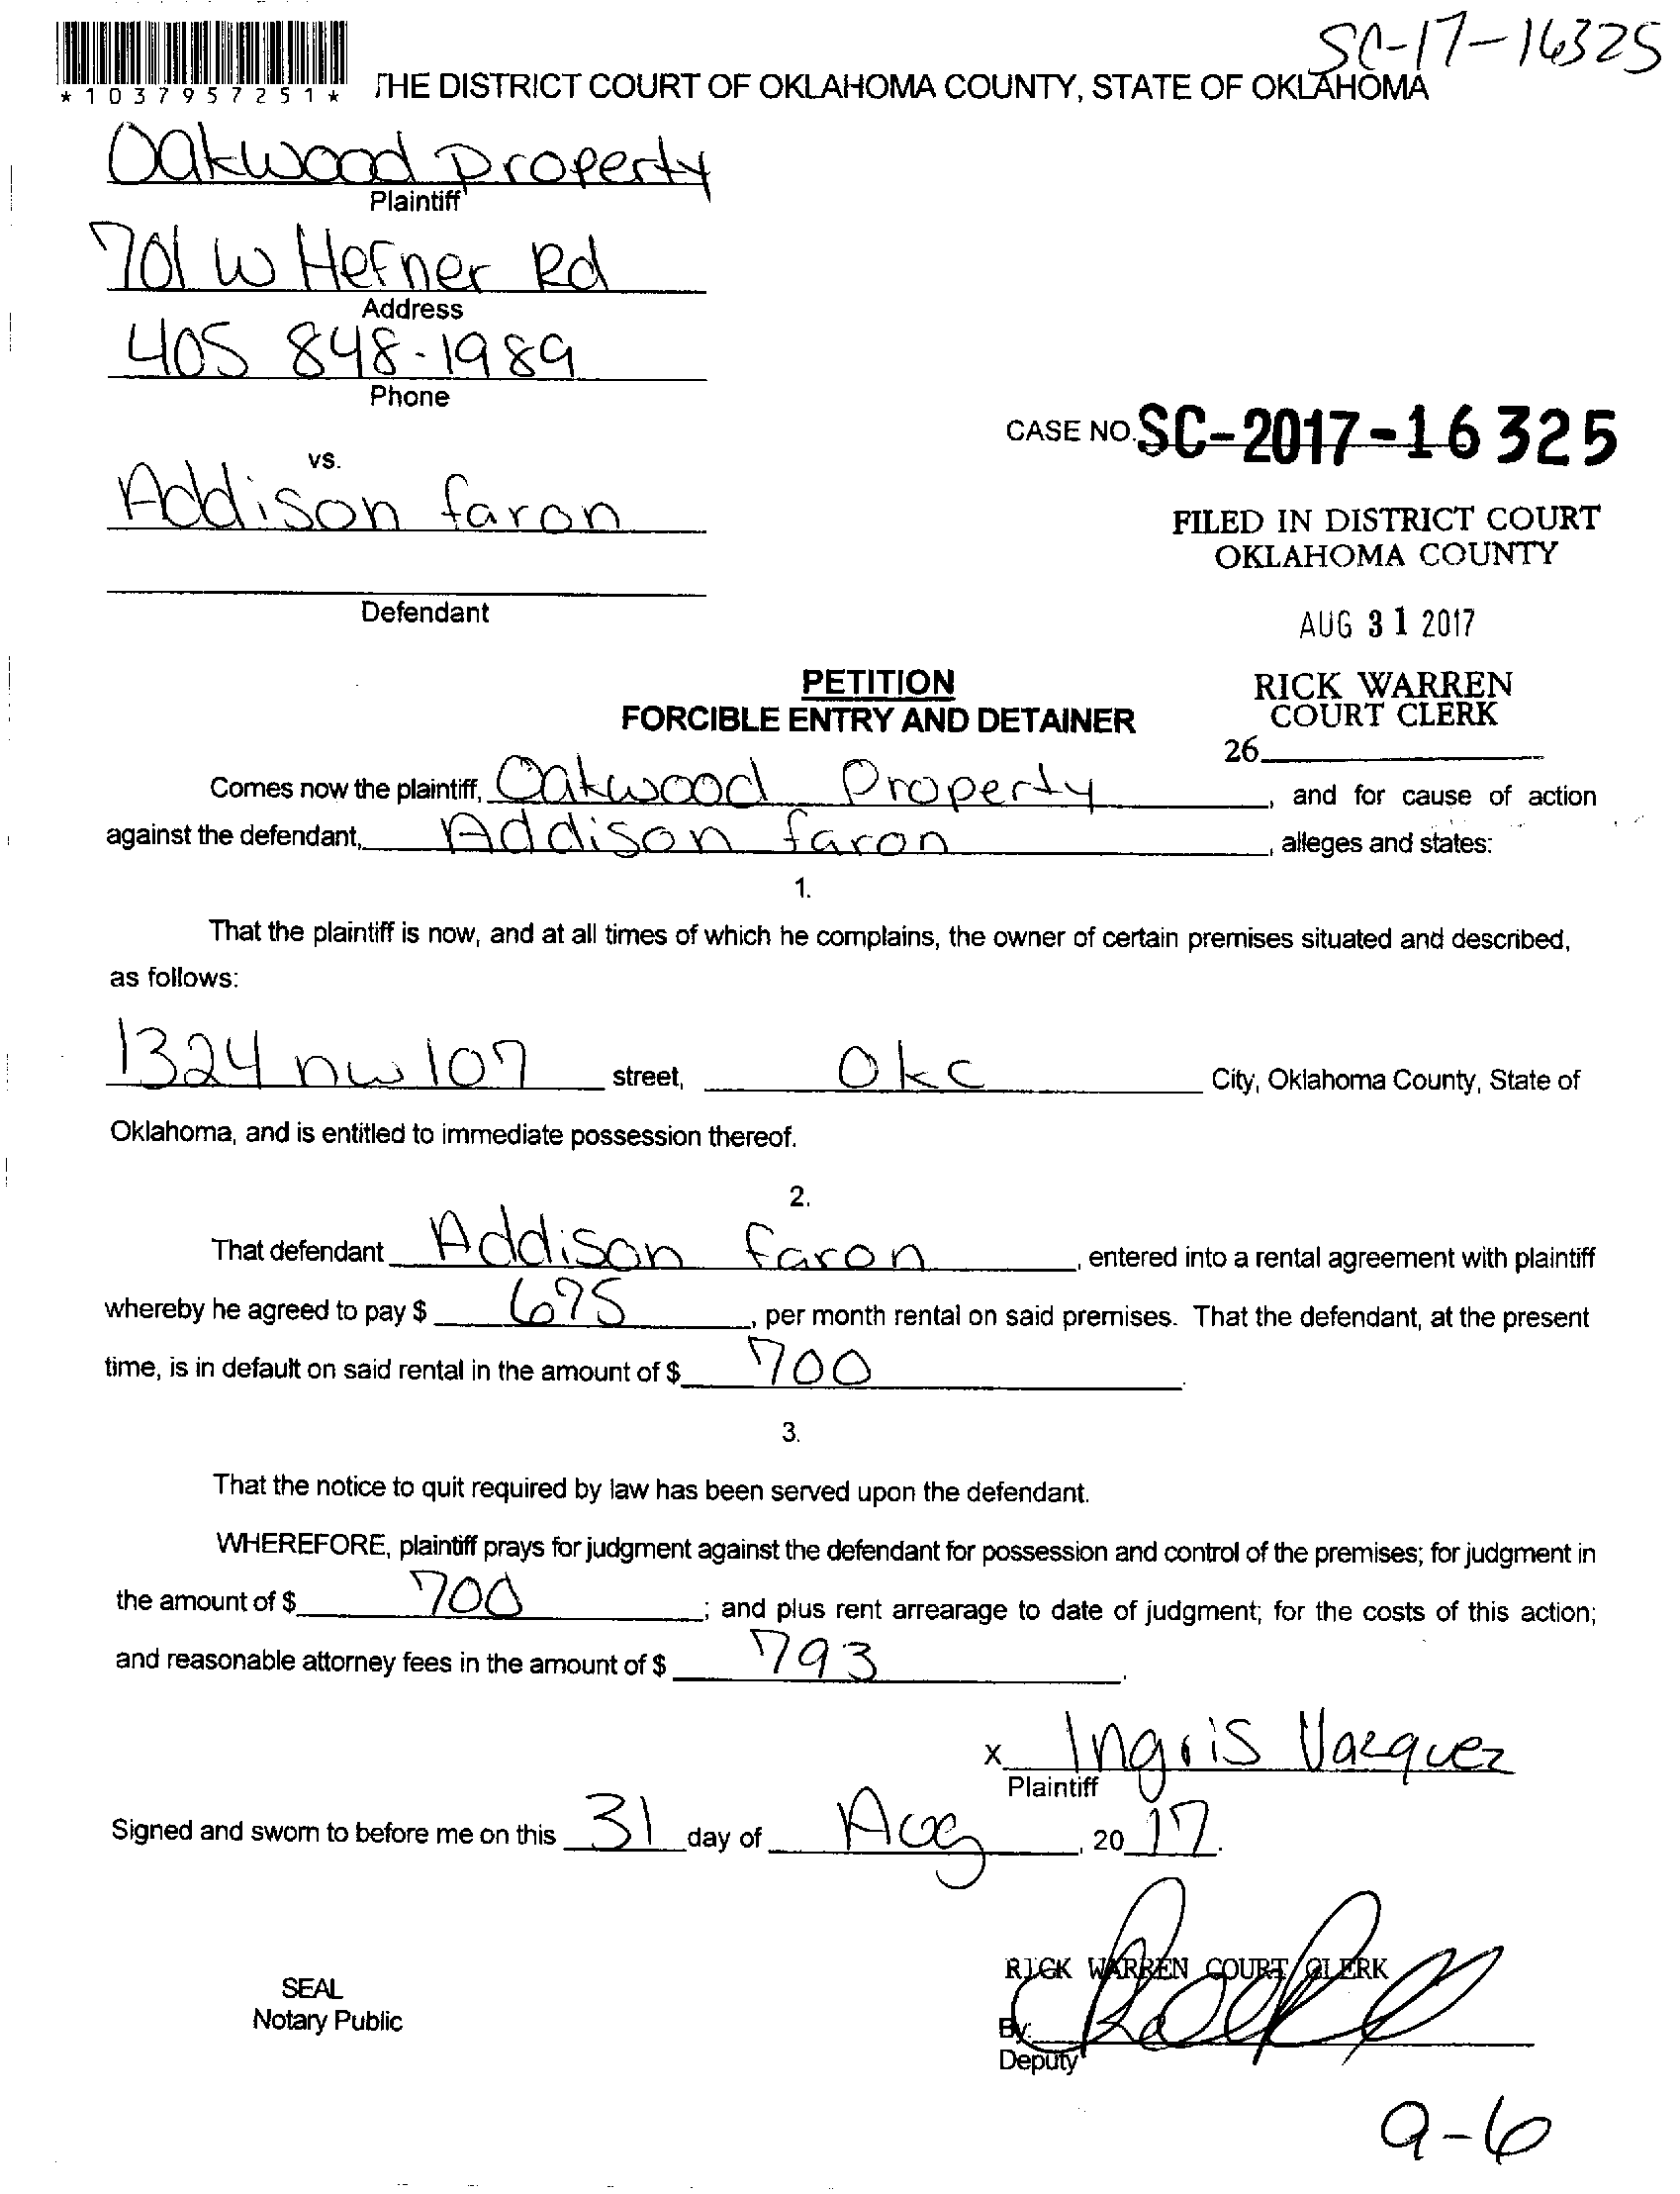 SC-17-16325
*1037957251*
THE DISTRICT COURT OF OKLAHOMA COUNTY, STATE OF OKLAHOMA
Oakwood Property
Plaintiff
701 W Hefner Rd
Address
405 848-1989
Phone
CASE NO. SC-2017-16325
vs.
Addison faron
FILED IN DISTRICT COURT
OKLAHOMA COUNTY
Defendant
AUG 31 2017
PETITION
FORCIBLE ENTRY AND DETAINER
RICK WARREN
COURT CLERK
26
Comes now the plaintiff, Oakwood Property, and for cause of action
against the defendant, Addison faron, alleges and states:
1.
That the plaintiff is now, and at all times of which he complains, the owner of certain premises situated and described,
as follows:
1324 nw 107 street, Okc City, Oklahoma County, State of
Oklahoma, and is entitled to immediate possession thereof.
2.
That defendant Addison faron, entered into a rental agreement with plaintiff
whereby he agreed to pay $ 675, per month rental on said premises. That the defendant, at the present
time, is in default on said rental in the amount of $ 700.
3.
That the notice to quit required by law has been served upon the defendant.
WHEREFORE, plaintiff prays for judgment against the defendant for possession and control of the premises; for judgment in
the amount of $ 700; and plus rent arrearage to date of judgment; for the costs of this action;
and reasonable attorney fees in the amount of $ 793.
x Ingris Vazquez
Plaintiff
Signed and sworn to before me on this 31 day of Aug, 20 17.
RICK WARREN COURT CLERK
SEAL
Notary Public
By:
Deputy
9-6